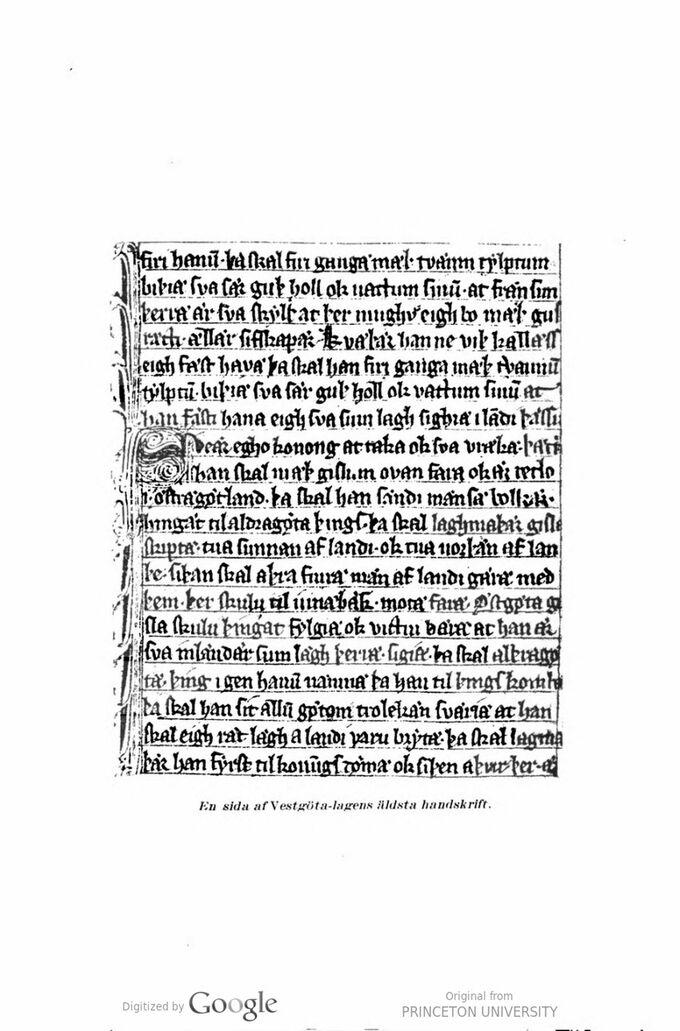 firi hanū · þa skal firi ganga mæþ tvænni tylptum
biþia sva sær guþ holl ok vattum sinū · at fran sim
þerra ær sva skylt at þer mughu eigh bo mæþ guþ
ræth · ællær sifskapær · kvæþær han ne viþ kallæss
eigh fæst hava þa skal han firi ganga mæþ tvænniū
tylptū · biþia sva sær guþ holl ok vattum sinū at
han fæsti hana eigh sva sum lagh sighia i landi þæssu
Svear egho konong at taka ok sva vræka · þær
han skal mæþ gislum ovan fara ok ær
i ostragøtland · þa skal han sændi mæn sina
hingat til aldragøta þings · þa skal laghmaþær gisla
skiptæ · tua sunnan af landi · ok tua norþæn af lan
þe · siþan skal aþra fiura mæn af landi gæræ með
þem · þer skulu til iunabæk · mota fara · Østgøta gi
sla skulu þingat fylgia ok vittni bæra at han ær
sva inlændær sum lagh þerræ · sigia · þa skal alþragø
ta · þing i gen hanū næmna þa han til þings kombr
þa skal han sic allū gøtom trolekæn sværia at han
skal eigh ræt lagh a landi varu bryta · þa skal laghma
þær han fyrst til konungs døma ok siþen aþrir þer · æ
En sida af Vestgöta-lagens äldsta handskrift.
Digitized by Google
Original from
PRINCETON UNIVERSITY